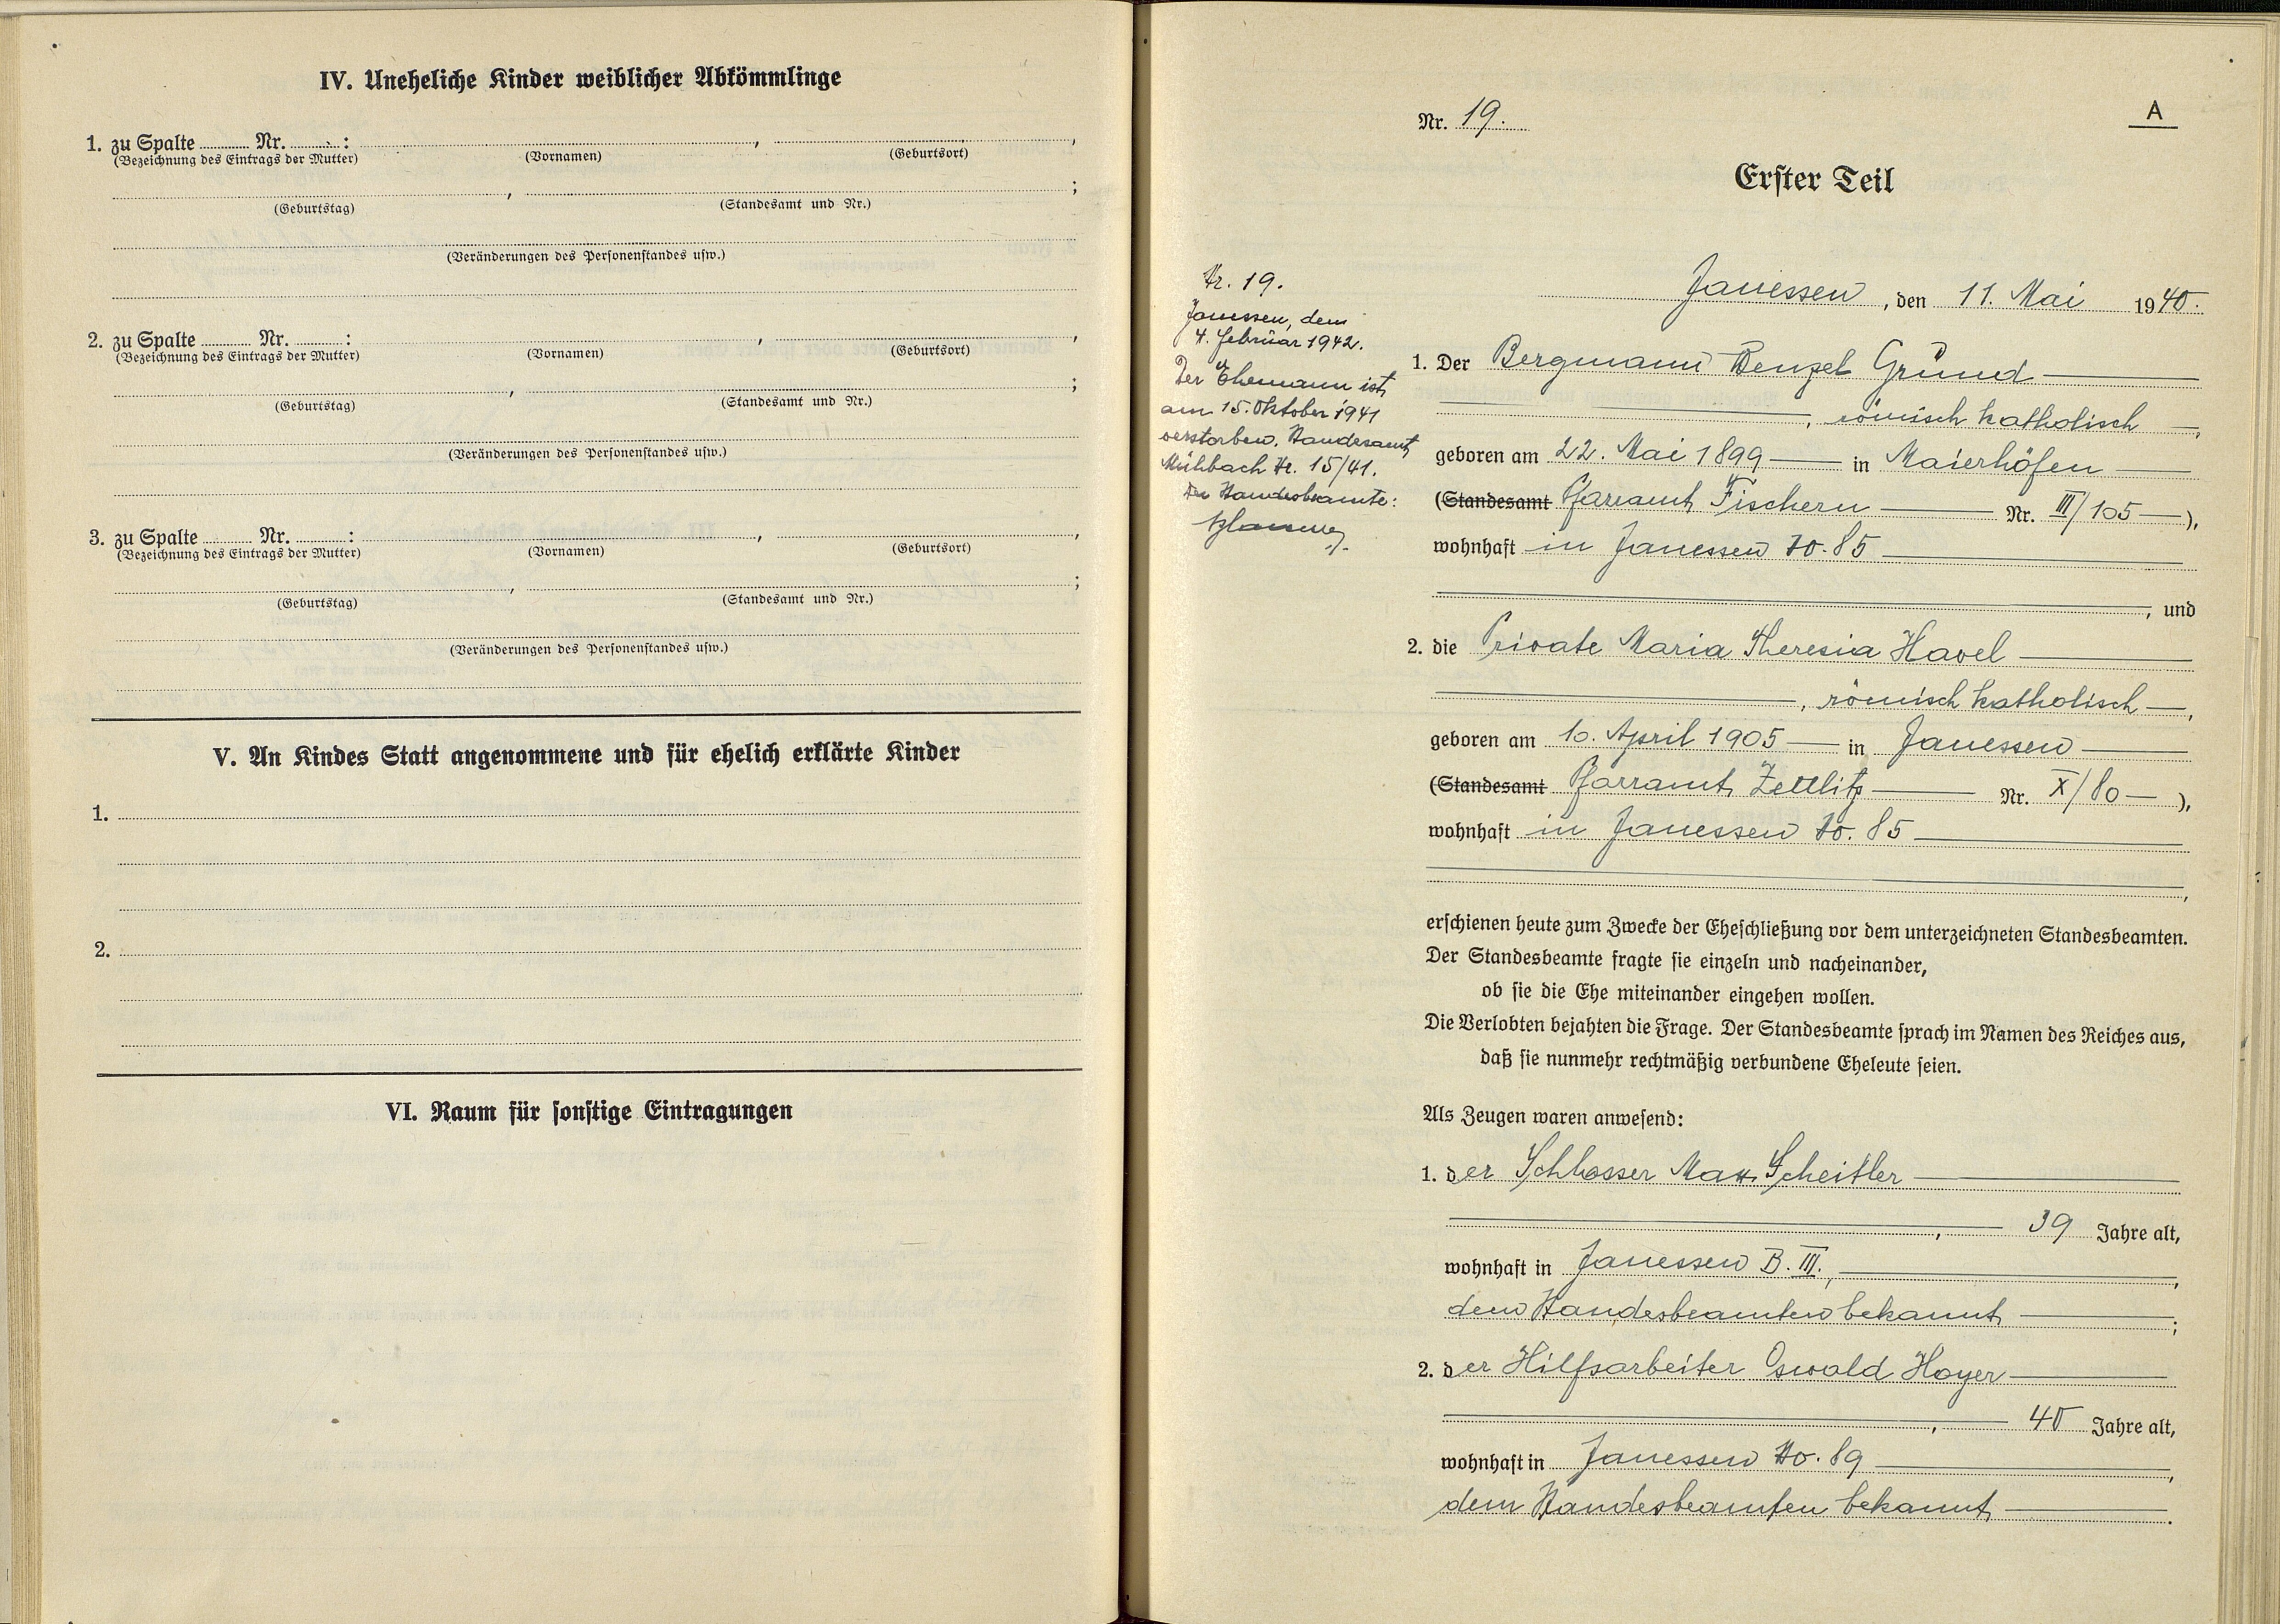 IV. Uneheliche Kinder weiblicher Abkömmlinge
1. zu Spalte ........ Nr. ........ : , ,
(Bezeichnung des Eintrags der Mutter) (Vornamen) (Geburtsort)
, ;
(Geburtstag) (Standesamt und Nr.)
(Veränderungen des Personenstandes usw.)
2. zu Spalte ........ Nr. ........ : , ,
(Bezeichnung des Eintrags der Mutter) (Vornamen) (Geburtsort)
, ;
(Geburtstag) (Standesamt und Nr.)
(Veränderungen des Personenstandes usw.)
3. zu Spalte ........ Nr. ........ : , ,
(Bezeichnung des Eintrags der Mutter) (Vornamen) (Geburtsort)
, ;
(Geburtstag) (Standesamt und Nr.)
(Veränderungen des Personenstandes usw.)
V. An Kindes Statt angenommene und für ehelich erklärte Kinder
1.
2.
VI. Raum für sonstige Eintragungen
A
Nr. 19.
Erster Teil
Janessen, den 11. Mai 1940.
Nr. 19.
Janessen, den
4. Februar 1942.
Der Ehemann ist
am 15. Oktober 1941
verstorben. Standesamt
Mühbach Nr. 15/41.
Der Standesbeamte:
1. Der Bergmann Wenzel Grund
, römisch katholisch,
geboren am 22. Mai 1899 in Maierhöfen
(Standesamt Pfarramt Fischern Nr. III/105),
wohnhaft in Janessen No. 85
, und
2. die Private Maria Theresia Havel
, römisch katholisch,
geboren am 10. April 1905 in Janessen
(Standesamt Pfarramt Zettlitz Nr. X/80),
wohnhaft in Janessen No. 85
,
erschienen heute zum Zwecke der Eheschließung vor dem unterzeichneten Standesbeamten.
Der Standesbeamte fragte sie einzeln und nacheinander,
ob sie die Ehe miteinander eingehen wollen.
Die Verlobten bejahten die Frage. Der Standesbeamte sprach im Namen des Reiches aus,
daß sie nunmehr rechtmäßig verbundene Eheleute seien.
Als Zeugen waren anwesend:
1. der Schlosser Max Scheitler
, 39 Jahre alt,
wohnhaft in Janessen B. III.,
dem Standesbeamten bekannt ;
2. der Hilfsarbeiter Oswald Hoyer
, 40 Jahre alt,
wohnhaft in Janessen No. 89 ,
dem Standesbeamten bekannt .